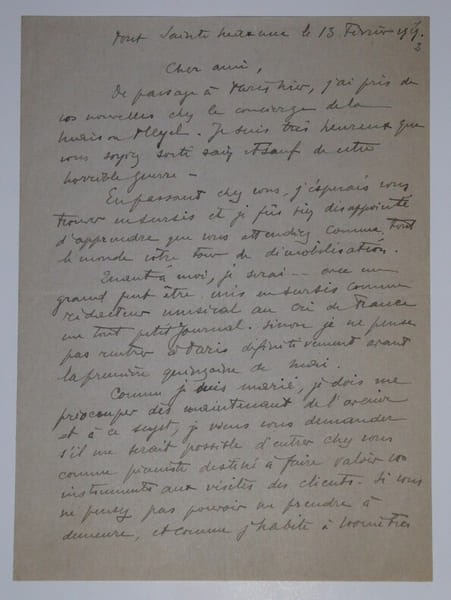 Pont Sainte Maxence le 13 Février 1919.
Cher ami,
De passage à Paris hier, j'ai pris de
vos nouvelles chez le concierge de la
maison Pleyel. Je suis très heureux que
vous soyez sorti sain et sauf de cette
horrible guerre -
En passant chez vous, j'espérais vous
trouver en sursis et je fus très désappointé
d'apprendre que vous attendiez comme tout
le monde votre tour de démobilisation.
Quant à moi, je serai -- avec un
grand peut être mis en sursis comme
rédacteur musical au Cri de France
un tout petit journal. Sinon je ne pense
pas rentrer à Paris définitivement avant
la première quinzaine de mai.
Comme je suis marié, je dois me
préoccuper dès maintenant de l'avenir
et à ce sujet, je viens vous demander
s'il me serait possible d'entrer chez vous
comme pianiste destiné à faire valoir vos
instruments aux visites des clients. Si vous
ne pensez pas pouvoir me prendre à
demeure, et comme j'habite à mètres